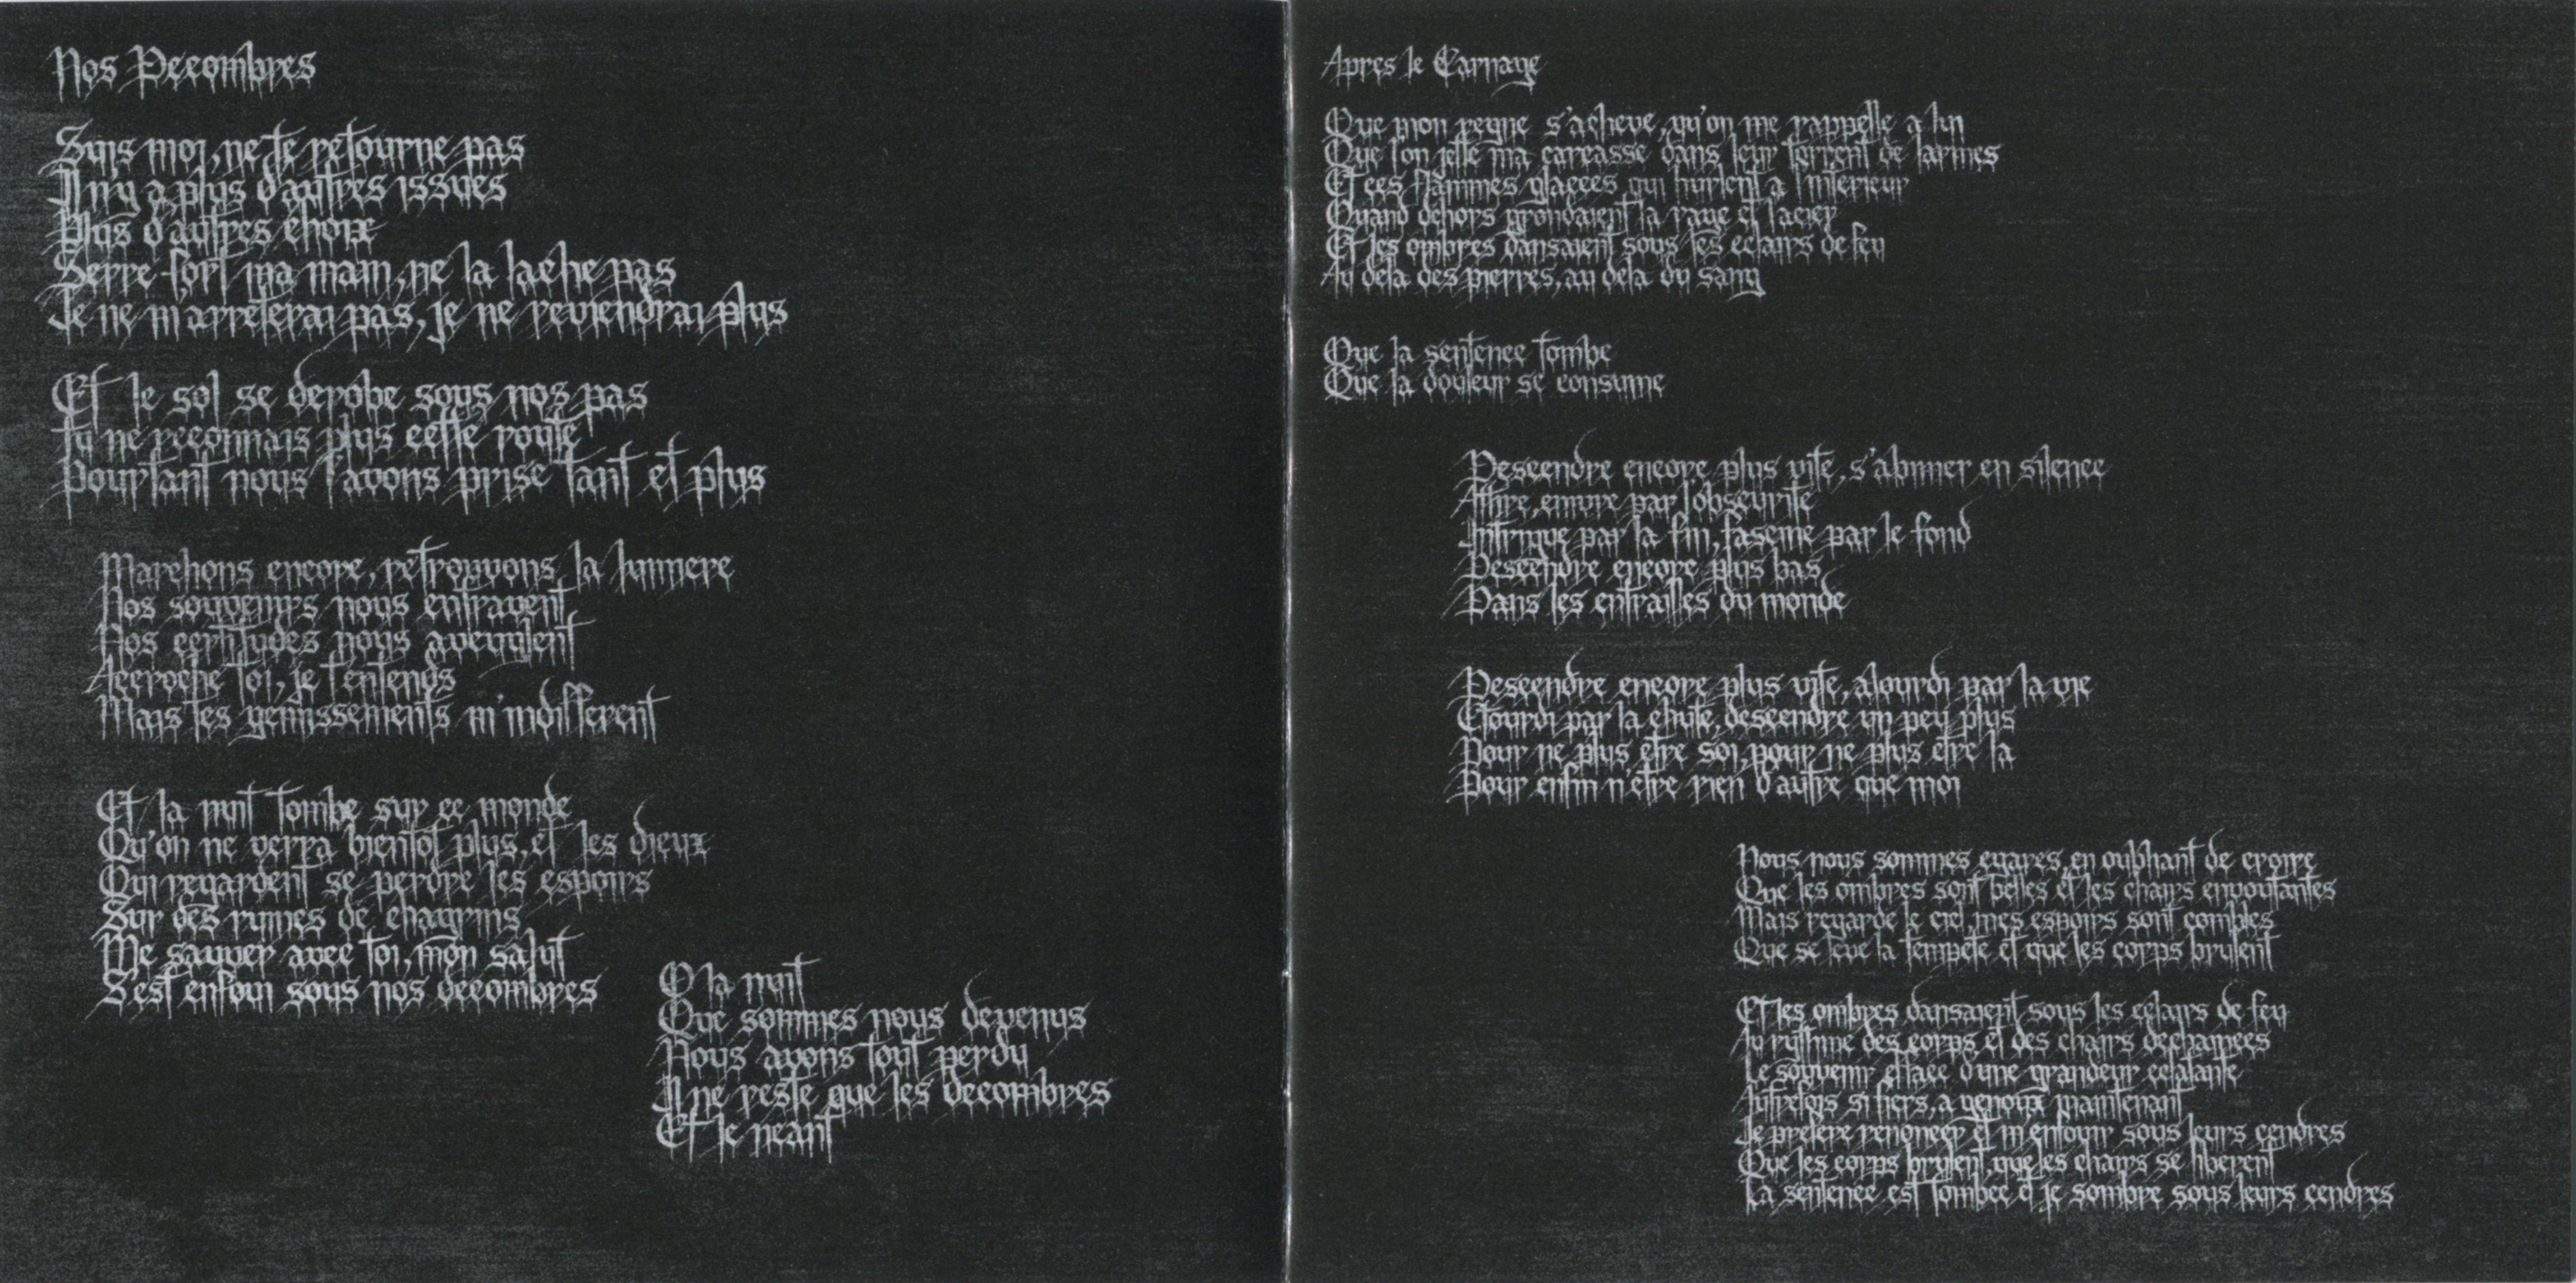 Nos Decombres
Suis moi, ne te retourne pas
Il n'y a plus d'autres issues
Plus d'autres choix
Serre fort ma main, ne la lache pas
Je ne m'arreterai pas, je ne reviendrai plus
Et le sol se derobe sous nos pas
Tu ne reconnais plus cette route
Pourtant nous l'avons prise tant et plus
Marchons encore, retrouvons la lumiere
Nos souvenirs nous entravent
Nos certitudes nous aveuglent
Accroche toi, je t'entends
Mais tes gemissements m'indifferent
Et la nuit tombe sur ce monde
Qu'on ne verra bientot plus, et les dieux
Qui regardent se perdre les espoirs
Sur des ruines de chagrins
Me sauver avec toi, mon salut
S'est enfoui sous nos decombres
O la nuit
Que sommes nous devenus
Nous avons tout perdu
Il ne reste que les decombres
Et le neant
Apres le Carnage
Que mon regne s'acheve, qu'on me rappelle a lui
Que l'on jette ma carcasse dans leur torrent de larmes
Et ces flammes glacees qui hurlent a l'interieur
Quand dehors grondaient la rage et l'acier
Et les ombres dansaient sous les eclairs de feu
Au dela des pierres, au dela du sang
Que la sentence tombe
Que la douleur se consume
Descendre encore plus vite, s'abimer en silence
Attire, enivre par l'obscurite
Intrigue par la fin, fascine par le fond
Descendre encore plus bas
Dans les entrailles du monde
Descendre encore plus vite, alourdi par la vie
Etourdi par la chute, descendre un peu plus
Pour ne plus etre soi, pour ne plus etre la
Pour enfin n'etre rien d'autre que moi
Nous nous sommes egares, en oubliant de croire
Que les ombres sont belles et les chairs envoutantes
Mais regarde le ciel, mes espoirs sont combles
Que se leve la tempete et que les corps brulent
Et les ombres dansaient sous les eclairs de feu
Au rythme des corps et des chairs dechainees
Le souvenir efface d'une grandeur eclatante
Autrefois si fiers, a genoux maintenant
Je prefere renoncer et m'enfouir sous leurs cendres
Que les corps brulent, que les chairs se liberent
La sentence est tombee et je sombre sous leurs cendres